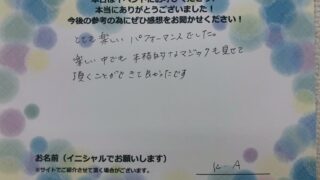 本当にありがとうございました!
今後の参考の為にぜひ感想をお聞かせください!
とても楽しいパフォーマンスでした。
楽しい中でも本格的なマジックも見せて
頂くことができてよかったです
お名前(イニシャルでお願いします)
K-A
※サイトでご紹介させて頂く場合がございます。